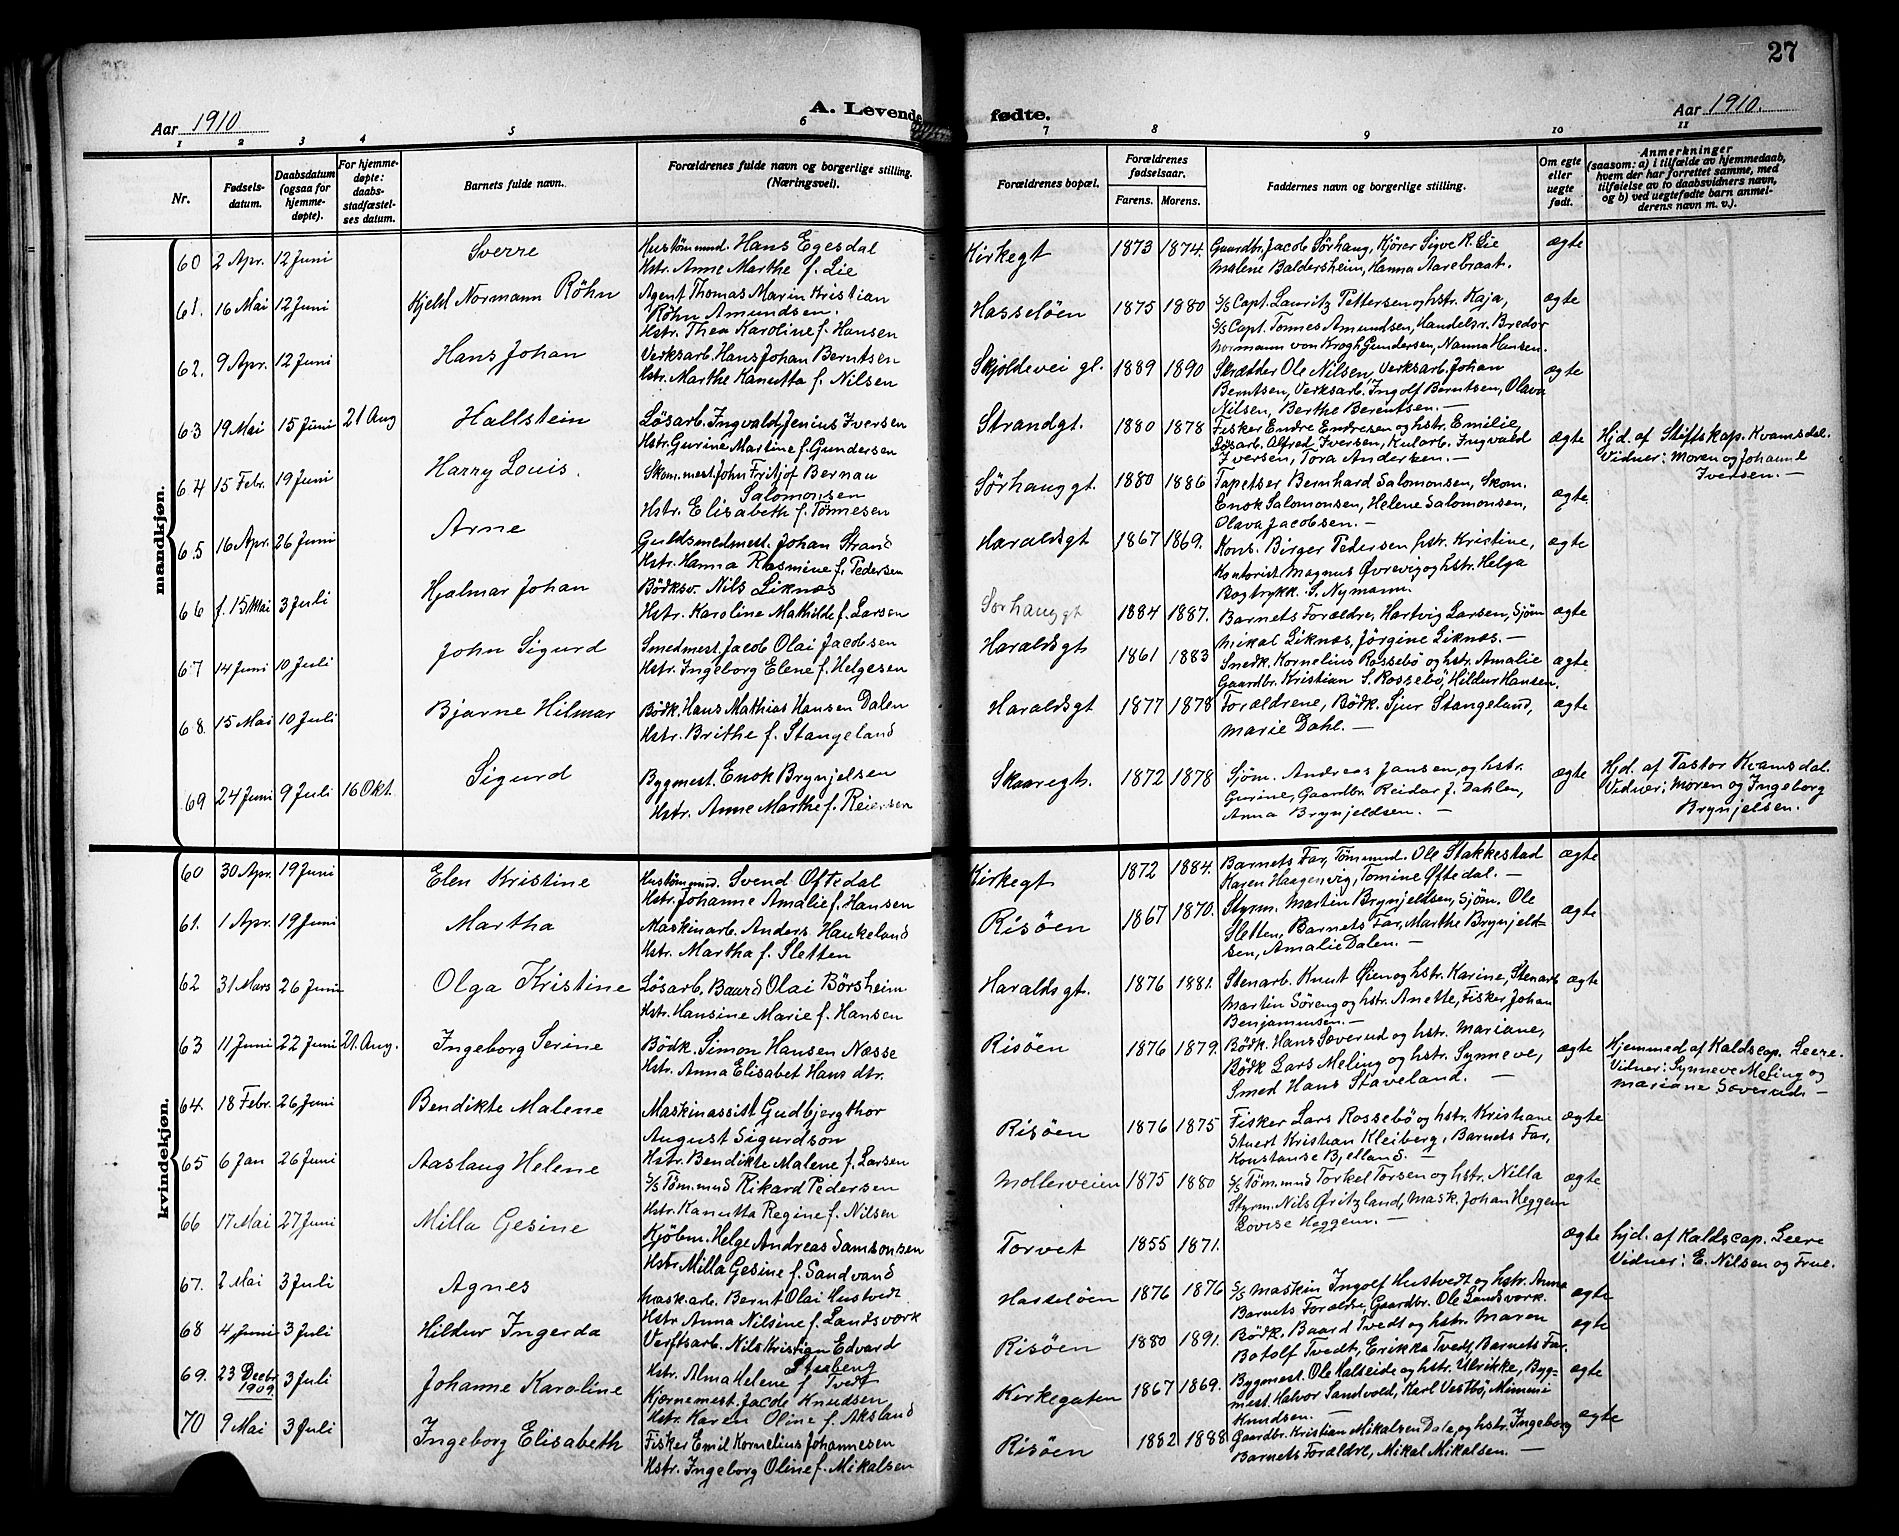 27
Aar 1910
A. Levende fødte.
Aar 1910.
1 2 3 4 5 6 7 8 9 10 11
Nr.
Fødsels-
datum.
Daabsdatum
(ogsaa for
hjemme-
døpte).
For hjemme-
døpte:
daabs-
stadfæstel-
ses datum.
Barnets fulde navn.
Forældrenes fulde navn og borgerlige stilling.
(Næringsvei).
Forældrenes bopæl.
Forældrenes
fødselsaar.
Farens. Morens.
Faddernes navn og borgerlige stilling.
Om egte
eller
uegte
født.
Anmerkninger
(saasom: a) i tilfælde av hjemmedaab,
hvem der har forrettet samme, med
tilføielse av to daabsvidners navn,
og b) ved uegtefødte barn anmel-
derens navn m. v.).
mandkjøn.
60 2 Apr. 12 Juni Sverre
Hustømmd. Hans Egesdal
Hstr. Anne Marthe f. Lie
Kirkegt 1873 1874.
Gaardbr. Jacob Sørhaug, Kjører Sigve R. Lie
Malene Baldersheim, Hanna Aarebraat.
ægte
61. 16 Mai 12 Juni Kjeld Normann Röhn
Agent Thomas Marin Kristian
Röhn Amundsen.
Hstr. Thea Karoline f. Hansen
Hasselöen 1875 1880
S/S Capt. Lauritz Pettersen og hstr. Kaja,
S/S Capt. Tönnes Amundsen, Handelsr. Bredor
Normann von Krogh Gundersen, Nanna Hansen.
ægte
62. 9 Apr. 12 Juni Hans Johan
Verksarb. Hans Johan Berntsen
Hstr. Marthe Kanutta f. Nilsen
Skjoldevei gl. 1889 1890
Skrædder Ole Nilsen, Verksarb. Johan
Berntsen, Verksarb. Ingolf Berntsen, Olava
Nilsen, Berthe Berentsen. —
ægte
63 19 Mai 15 Juni 21 Aug Hallstein
Løsarb. Ingvald Jenius Iversen
Hstr. Gurine Martine f. Gundersen
Strandgt. 1880 1878
Fisker Endre Endresen og hstr. Emilie,
Løsarb. Alfred Iversen, Kularb. Ingvald
Iversen, Tora Andersen. —
ægte
Hjd. af Stiftskap. Kvamsdal.
Vidner: Moren og Johanne
Iversen. —
64 15 Febr. 19 Juni Harry Louis.
Skom. mest. John Fritjof Bernau
Salomonsen
Hstr. Elisabeth f. Tönnesen
Sörhauggt. 1880 1886
Tapetser Bernhard Salomonsen, Skom.
Enok Salomonsen, Helene Salomonsen,
Olava Jacobsen. —
ægte
65 16 Apr. 26 Juni Arne
Guldsmedmest. Johan Strand
Hstr. Hanna Rasmine f. Pedersen
Haraldsgt 1867 1869.
Kons. Birger Pedersen hstr. Kristine,
Kontorist Magnus Øvrevig og hstr. Helga
Bogtrykk. S. Nymann.
ægte
66 f. 15 Mai 3 Juli Hjalmar Johan
Bödksv. Nils Liknes
Hstr. Karoline Mathilde f. Larsen
Sörhauggt 1884 1887.
Barnets Forældre, Hartvig Larsen, Sjöm
Mikal Liknes, Jörgine Liknes. —
ægte
67 14 Juni 10 Juli John Sigurd
Smedmest. Jacob Olai Jacobsen
Hstr. Ingeborg Elene f. Helgesen
Haraldsgt 1861 1883
Snedk. Kornelius Rossebö og hstr. Amalie
Gaardbr. Kristian S. Rossebö, Hildur Hansen.
ægte
68. 15 Mai 10 Juli Bjarne Hilmar
Bødk. Hans Mathias Hansen Dalen
Hstr. Brithe f. Stangeland
Haraldsgt 1877 1878
Forældrene, Bødk. Sjur Stangeland,
Marie Dahl. —
ægte
69 24 Juni 9 Juli 16 Okt. Sigurd
Bygmest. Enok Brynjelsen
Hstr. Anne Marthe f. Reiersen
Skaaregt. 1872 1878
Sjöm. Andreas Jansen, og hstr.
Gurine, Gaardbr. Reidar J. Dahlen,
Anna Brynjeldsen. —
ægte
Hjd. af Pastor Kvamsdal.
Vidner: Moren og Ingeborg
Brynjelsen.
kvindekjøn.
60 30 Apr. 19 Juni Elen Kristine
Hustömmd. Svend Oftedal
Hstr. Johanne Amalie f. Hansen
Kirkegt 1872 1884.
Barnets Far, Tömmmd. Ole Stakkestad
Karen Haagenvig, Tomine Oftedal. —
ægte
61. 1 Apr. 19 Juni Martha
Maskinarb. Anders Haukeland
Hstr. Martha f. Sletten
Risöen 1867 1870.
Styrm. Martin Brynjeldsen, Sjöm. Ole
Sletten, Barnets Far, Marthe Brynjeld-
sen, Amalie Dalen. —
ægte
62 31 Mars 26 Juni Olga Kristine
Løsarb. Baard Olai Börsheim
Hstr. Hansine Marie f. Hansen
Haraldsgt. 1876 1881.
Stenarb. Knut Øien og hstr. Karine, Stenarb
Martin Söreng og hstr. Anette, Fisker Johan
Benjaminsen. —
ægte
63 11 Juni 22 Juni 21. Aug. Ingeborg Serine
Bødk. Simon Hansen Næsse
Hstr. Anna Elisabet Hans dtr.
Risöen 1876 1879.
Bødk. Hans Soverud og hstr. Mariane,
Bødk Lars Meling og hstr. Synneve,
Smed Hans Staveland. —
ægte
Hjemmed af Kaldscap. Leere.
Vidner: Synneve Meling og
Mariane Soverud. —
64. 18 Febr. 26 Juni Bendikte Malene
Maskinassist Gudbjergthor
August Sigurdson
Hstr. Bendikte Malene f. Larsen
Risöen 1876 1875
Fisker Lars Rossebö og hstr. Kristiane
Stuert Kristian Kleiberg, Barnets Far,
Konstanse Bjelland. —
ægte
65 6 Jan 26 Juni Aaslaug Helene
S/S Töm.mnd Rikard Pedersen
Hstr. Kanutta Regine f. Nilsen
Mollerveien 1875 1880
S/S Töm.mnd Torkel Torsen og hstr. Nilla
Styrm. Nils Øritzland, Mask. Johan Heggem
Lovise Heggem. —
ægte
66 17 Mai 27 Juni Milla Gesine
Kjöbm. Helge Andreas Samsonsen
Hstr. Milla Gesine f. Sandvand
Torvet 1855 1871.
ægte
hjd. af Kaldscap. Leere
Vidner: E. Nilsen og Frue.
67. 2 Mai 3 Juli Agnes
Maskarb. Bernt Olai Hustvedt
Hstr. Anna Nilsine f. Landsvork
Hasselöen 1876 1876
S/S Maskin Ingolf Hustvedt og hstr. Anna
Barnets Forældre, Gaardbr. Ole Landsvork.
ægte
68 4 Juni 3 Juli Hildur Ingerda
Verftsarb. Nils Kristian Edvard
Staabeng
Hstr. Alma Helene f. Tvedt
Risöen 1880 1891.
Bødk. Baard Tvedt og hstr. Maren
Botolf Tvedt, Erikka Tvedt, Barnets Far.
ægte
69. 23 Decbr 1909 3 Juli Johanne Karoline
Kjörnemest. Jacob Knudsen
Hstr. Karen Oline f. Aksland
Kirkegaten 1867 1869.
Bygmest. Ole Halseide og hstr. Ulrikke, Byg-
mest. Halvor Sandvold, Karl Vestbö, Mimmi
Knudsen. —
ægte
70 9 Mai 3 Juli Ingeborg Elisabeth
Fisker Emil Kornelius Johannesen
Hstr. Ingeborg Oline f. Mikalsen
Risöen 1882 1888
Gaardbr. Kristian Mikalsen Dale, og hstr. Ingeborg
Barnets Forældre, Mikal Mikalsen. —
ægte